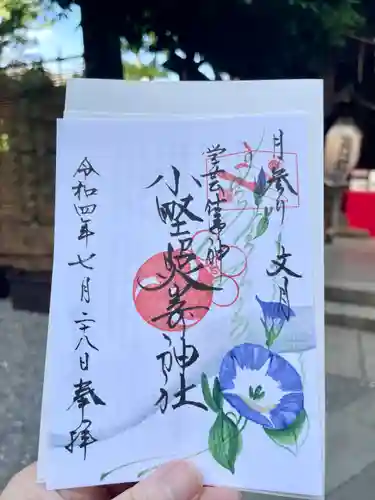 月参り 文月
学芸之神
小野照崎神社
令和四年七月二十八日 奉拝